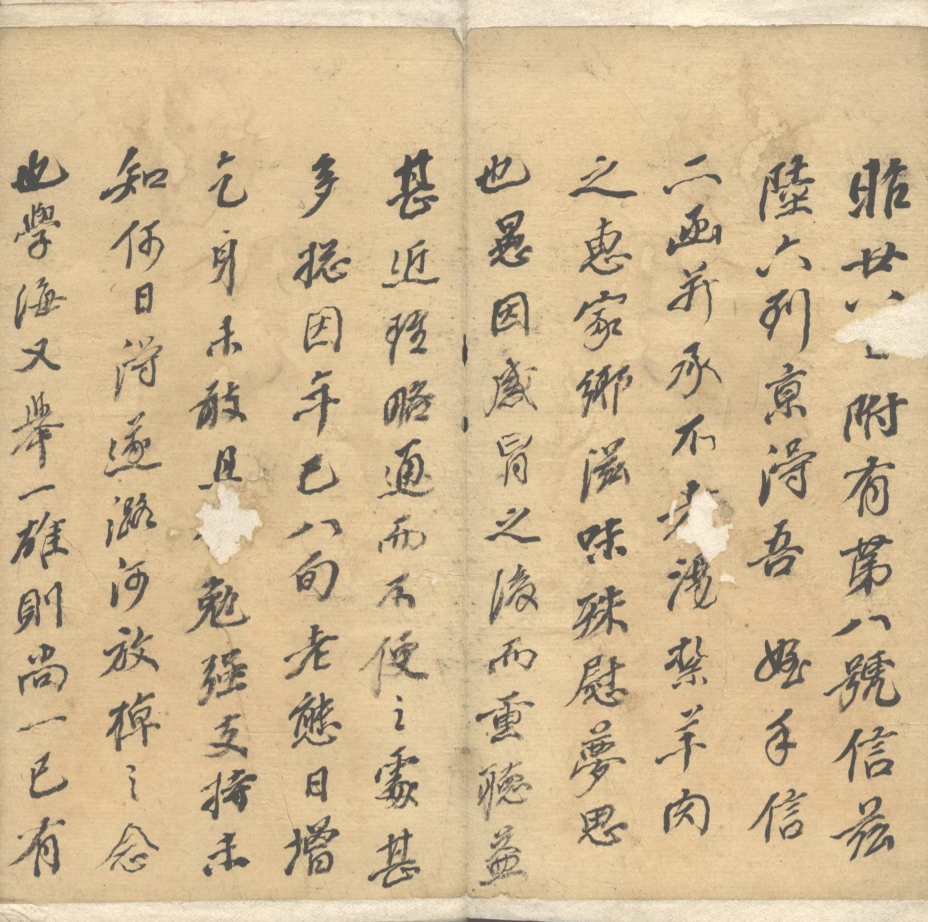 昨廿八附有第八號信茲
陸六到京得吾姪手信
二函并承不老湯紮羊肉
之惠家鄉滋味殊慰夢思
也愚因感冒之後而重聽益
甚近雖略通而不便之處甚
多總因年已八旬老態日增
乞身未敢且勉強支持未
知何日得遂潞河放棹之念
也學海又舉一雄則尚一已有